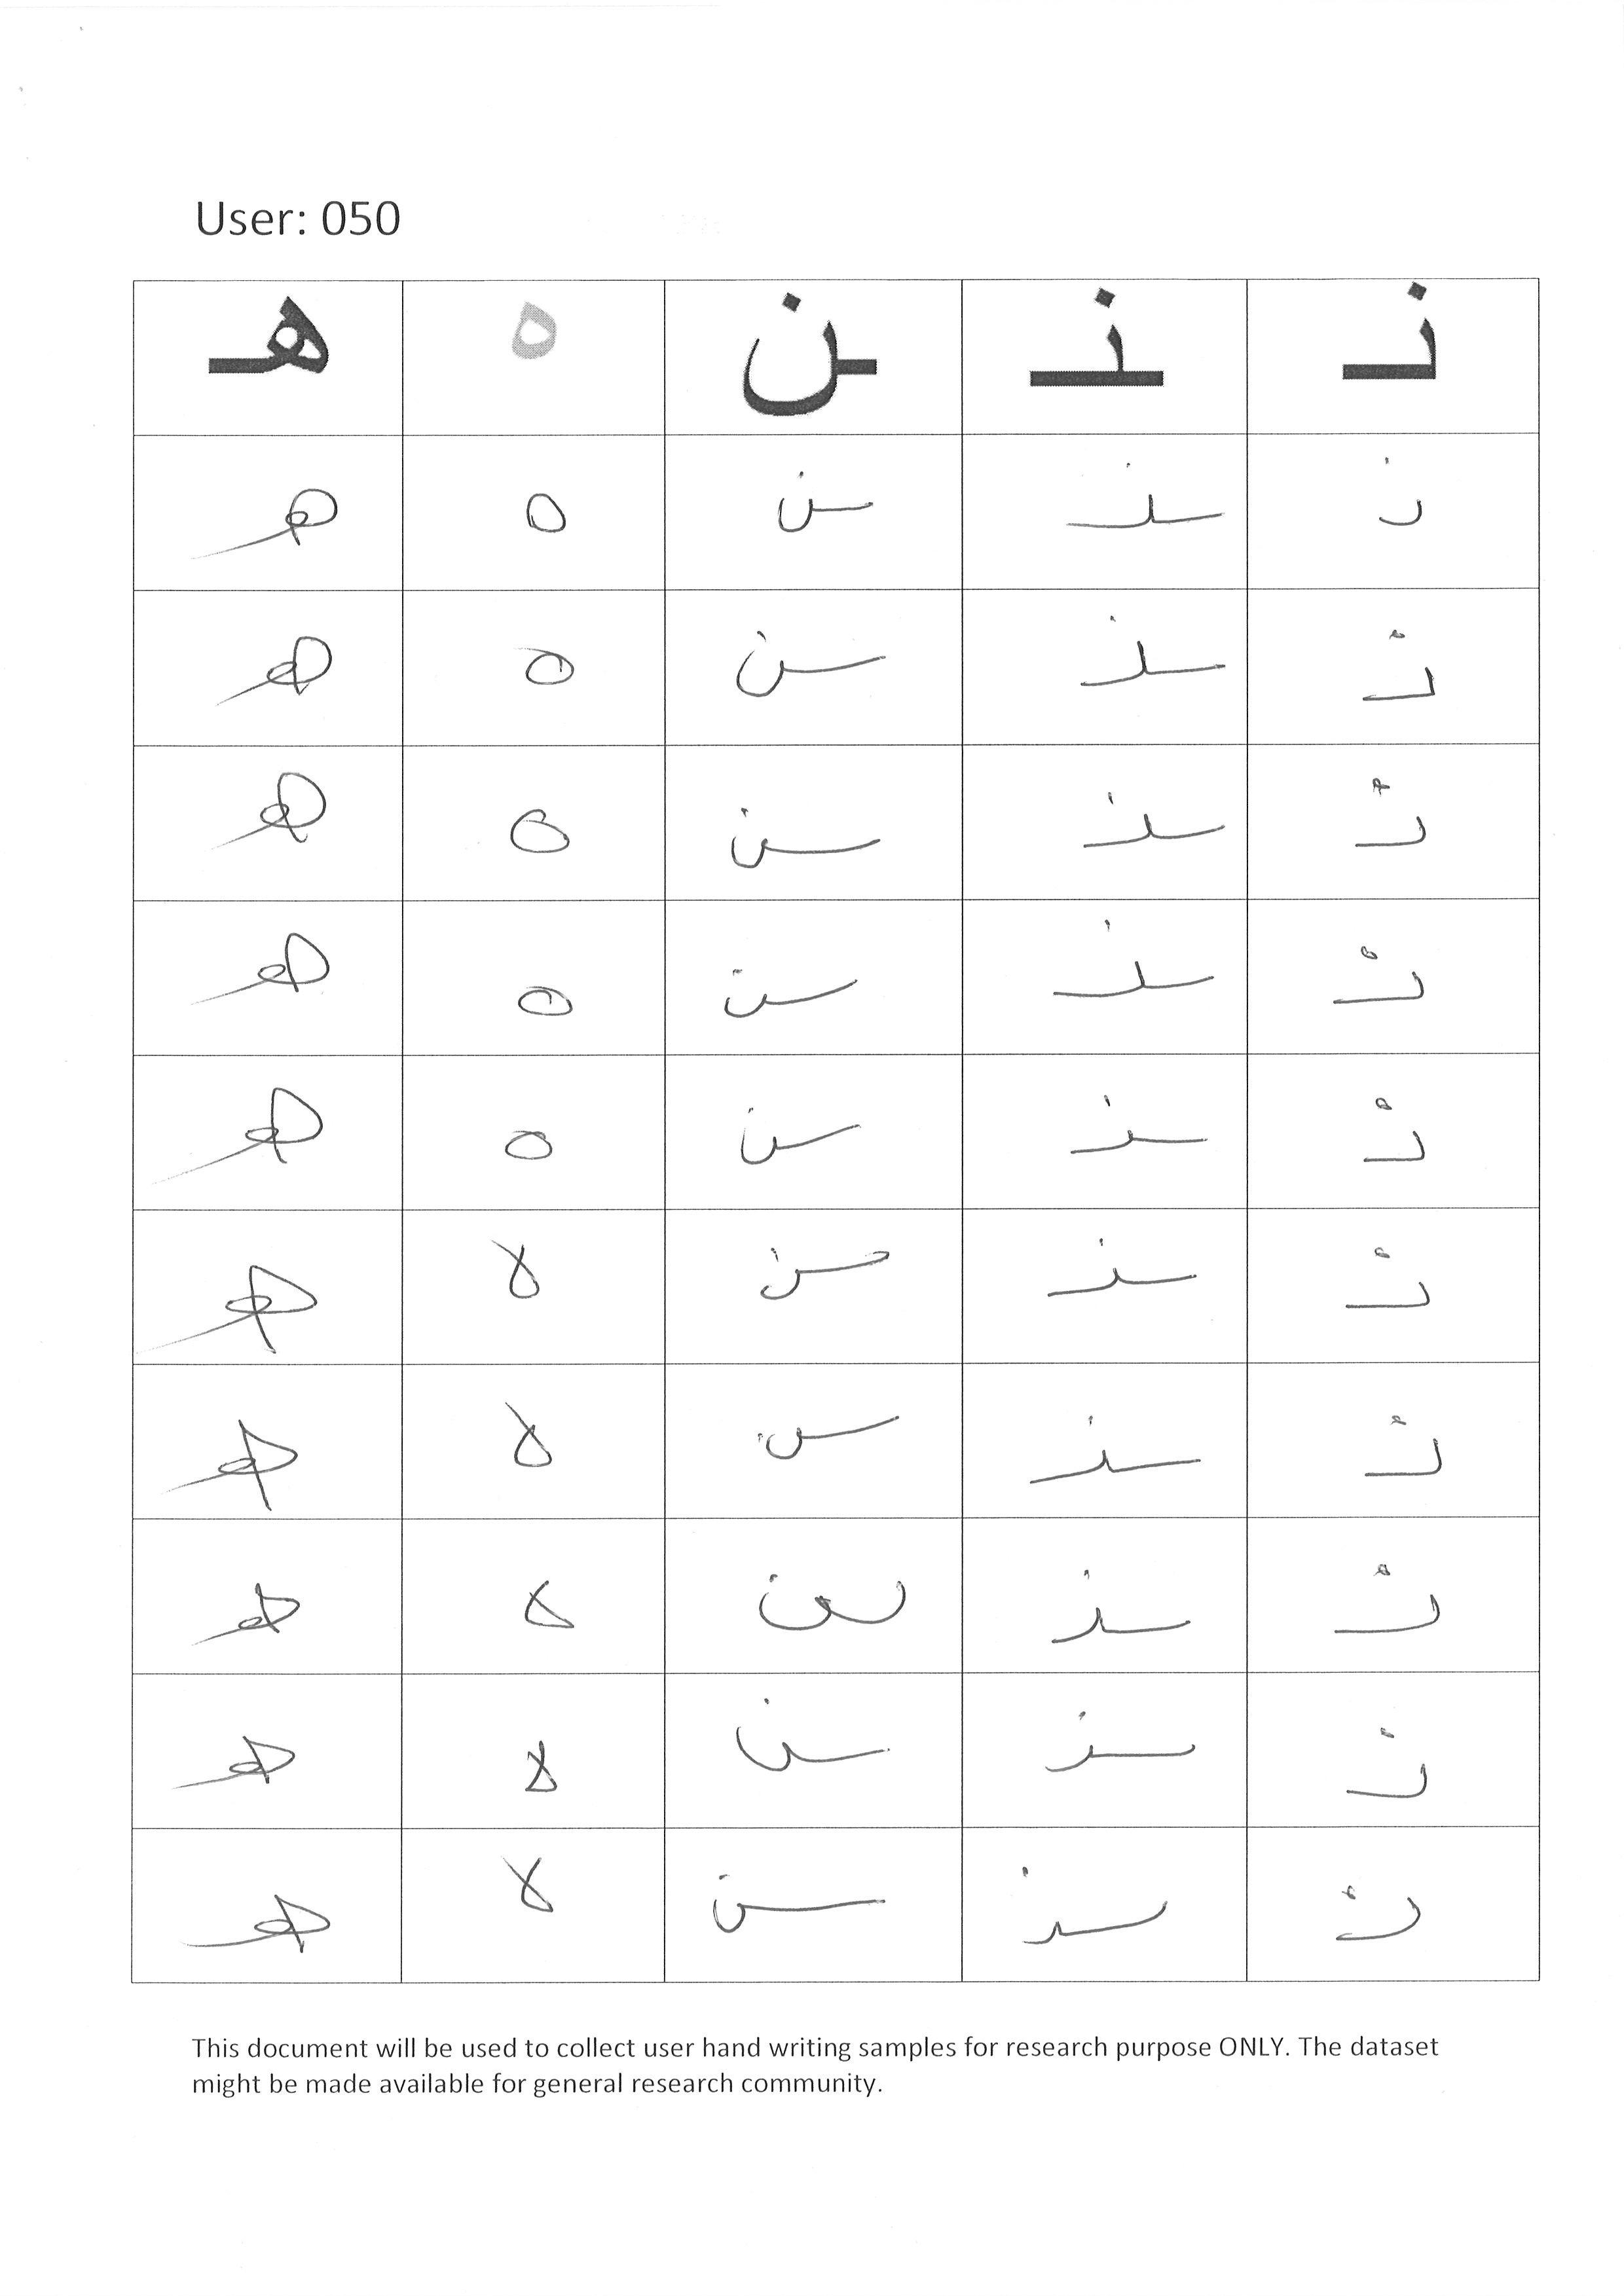 User: 050
نـ ـنـ ـن ه هـ
نـ ـنـ ـن ه هـ
نـ ـنـ ـن ه هـ
نـ ـنـ ـن ه هـ
نـ ـنـ ـن ه هـ
نـ ـنـ ـن ه هـ
نـ ـنـ ـن ه هـ
نـ ـنـ ـن ه هـ
نـ ـنـ ـن ه هـ
نـ ـنـ ـن ه هـ
نـ ـنـ ـن ه هـ
This document will be used to collect user hand writing samples for research purpose ONLY. The dataset
might be made available for general research community.